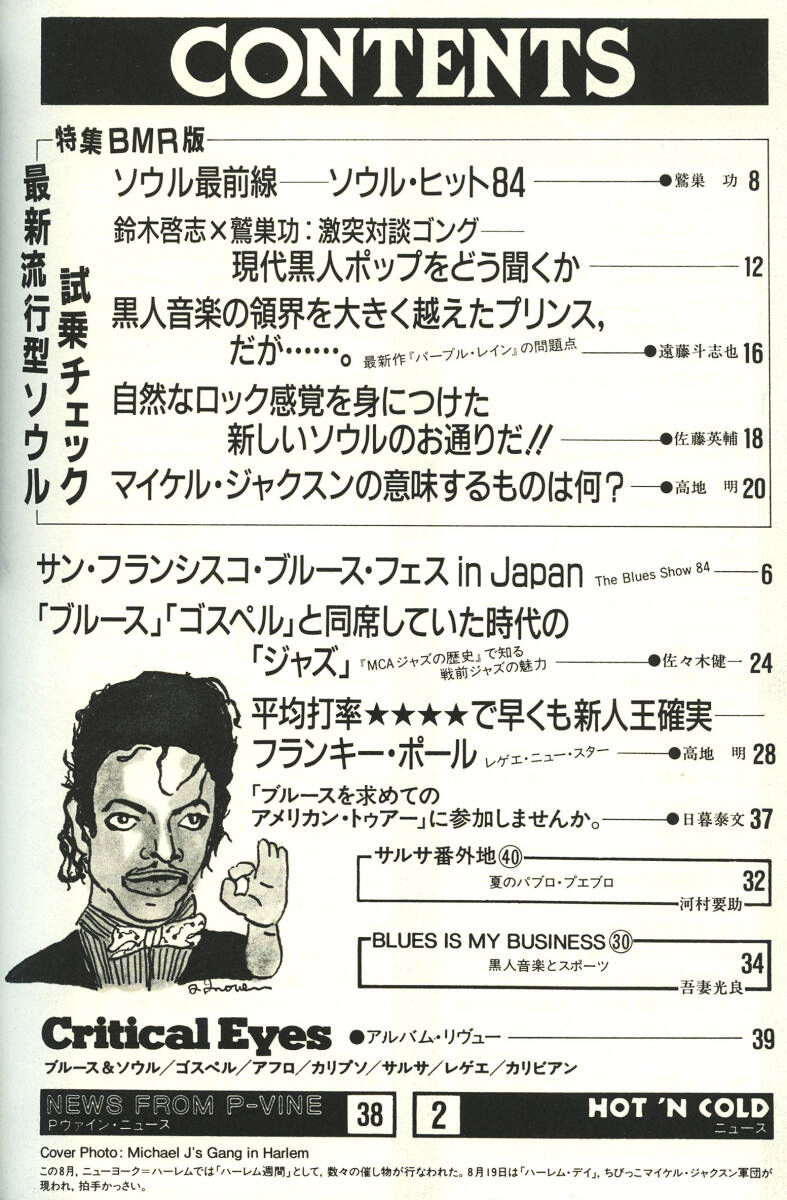 CONTENTS
特集BMR版
最新流行型ソウル
試乗チェック
ソウル最前線──ソウル・ヒット84 ●鷲巣 功 8
鈴木啓志×鷲巣功：激突対談ゴング──
現代黒人ポップをどう聞くか 12
黒人音楽の領界を大きく越えたプリンス，
だが……。最新作『パープル・レイン』の問題点 ●遠藤斗志也 16
自然なロック感覚を身につけた
新しいソウルのお通りだ!! ●佐藤英輔 18
マイケル・ジャクスンの意味するものは何？ ●高地 明 20
サン・フランシスコ・ブルース・フェス in Japan The Blues Show 84 6
「ブルース」「ゴスペル」と同席していた時代の
「ジャズ」『MCAジャズの歴史』で知る
戦前ジャズの魅力 ●佐々木健一 24
平均打率★★★★で早くも新人王確実──
フランキー・ポール レゲエ・ニュー・スター ●高地 明 28
「ブルースを求めての
アメリカン・トゥアー」に参加しませんか。 ●日暮泰文 37
サルサ番外地㊵
夏のパブロ・プエブロ 32
河村要助
BLUES IS MY BUSINESS㉚
黒人音楽とスポーツ 34
吾妻光良
Critical Eyes ●アルバム・リヴュー 39
ブルース＆ソウル／ゴスペル／アフロ／カリプソ／サルサ／レゲエ／カリビアン
NEWS FROM P-VINE 38
Pヴァイン・ニュース
2 HOT 'N COLD
ニュース
Cover Photo: Michael J's Gang in Harlem
この8月，ニューヨーク＝ハーレムでは「ハーレム週間」として，数々の催し物が行なわれた。8月19日は「ハーレム・デイ」，ちびっこマイケル・ジャクスン軍団が
現われ，拍手かっさい。